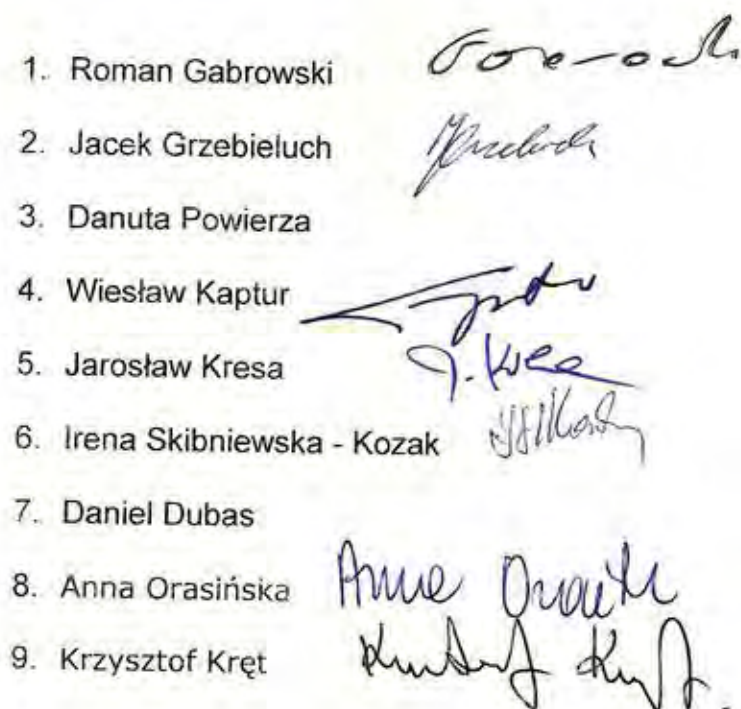 1. Roman Gabrowski
2. Jacek Grzebieluch
3. Danuta Powierza
4. Wiesław Kaptur
5. Jarosław Kresa J. Kresa
6. Irena Skibniewska - Kozak
7. Daniel Dubas
8. Anna Orasińska Anna
9. Krzysztof Kręt